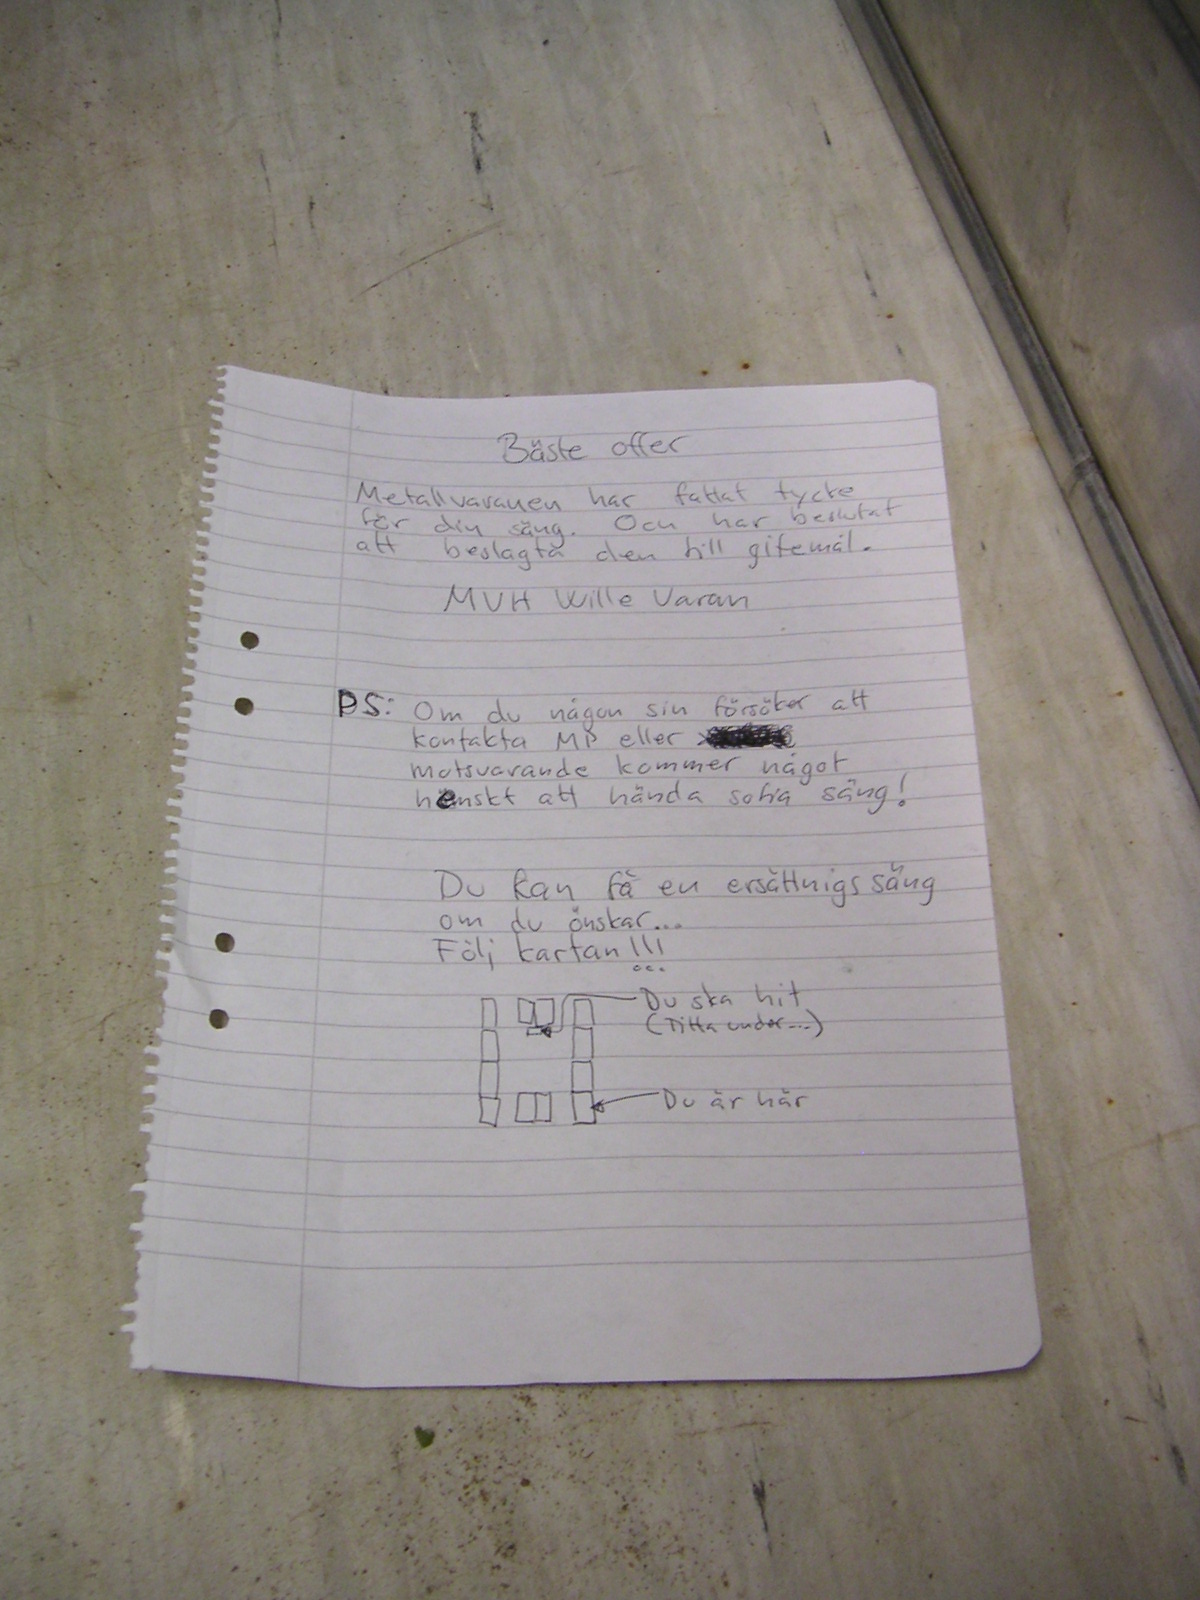 Bäste offer
Metallvaranen har fattat tycke
för din säng. Och har beslutat
att beslagta den till giftemål.
MVH Wille Varan
PS: Om du någon sin försöker att
kontakta MP eller
motsvarande kommer något
hemskt att hända sofia säng!
Du kan få en ersättnigs säng
om du önskar...
Följ kartan!!!
Du ska hit
(Titta under...)
Du är här